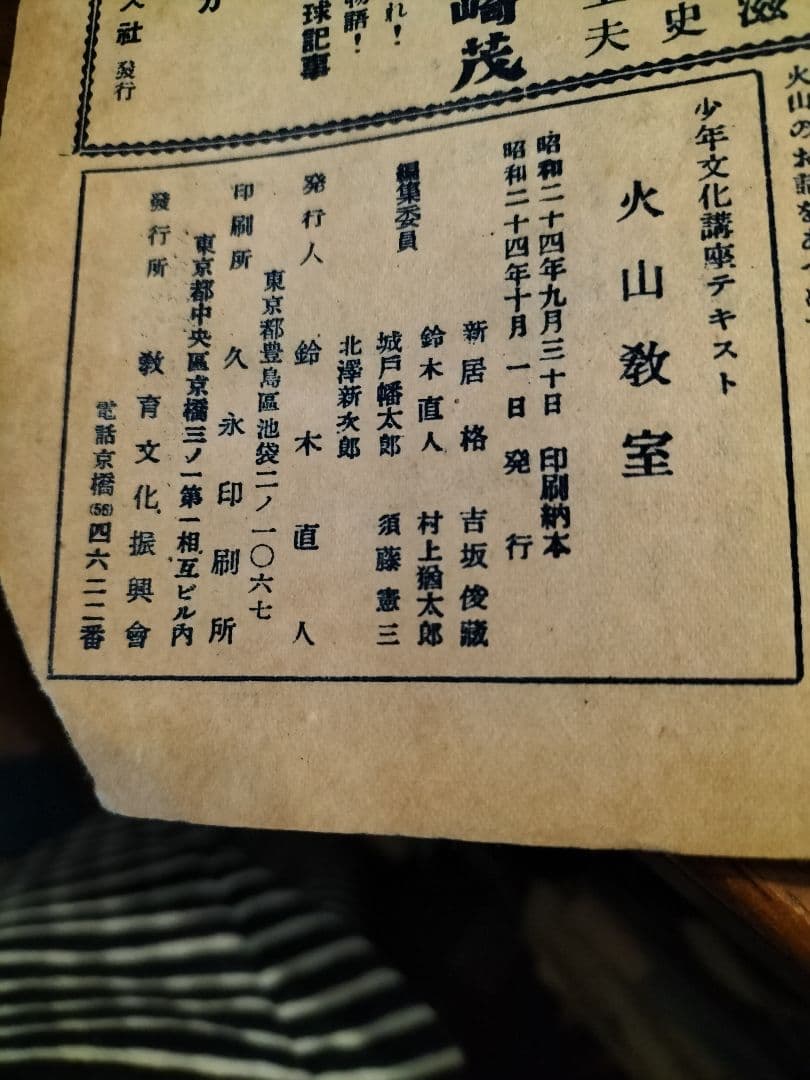 滋
史
夫
崎茂
れ!
物語!
球記事
社 發行
火山のお話を
少年文化講座テキスト
火山敎室
昭和二十四年九月三十日 印刷納本
昭和二十四年十月一日 発行
編集委員
新居格 吉坂俊藏
鈴木直人 村上猶太郎
城戸幡太郎 須藤憲三
北澤新次郎
発行人 鈴木直人
東京都豊島區池袋二ノ一〇六七
印刷所 久永印刷所
東京都中央區京橋三ノ一第一相互ビル内
發行所 敎育文化振興會
電話京橋(56)四六二二番